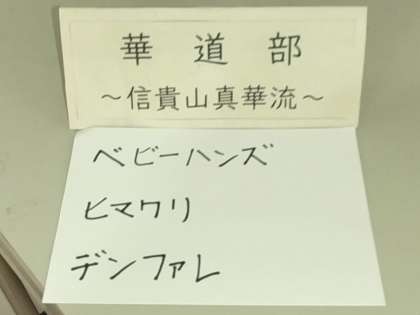 華道部
～信貴山真華流～
ベビーハンズ
ヒマワリ
デンファレ